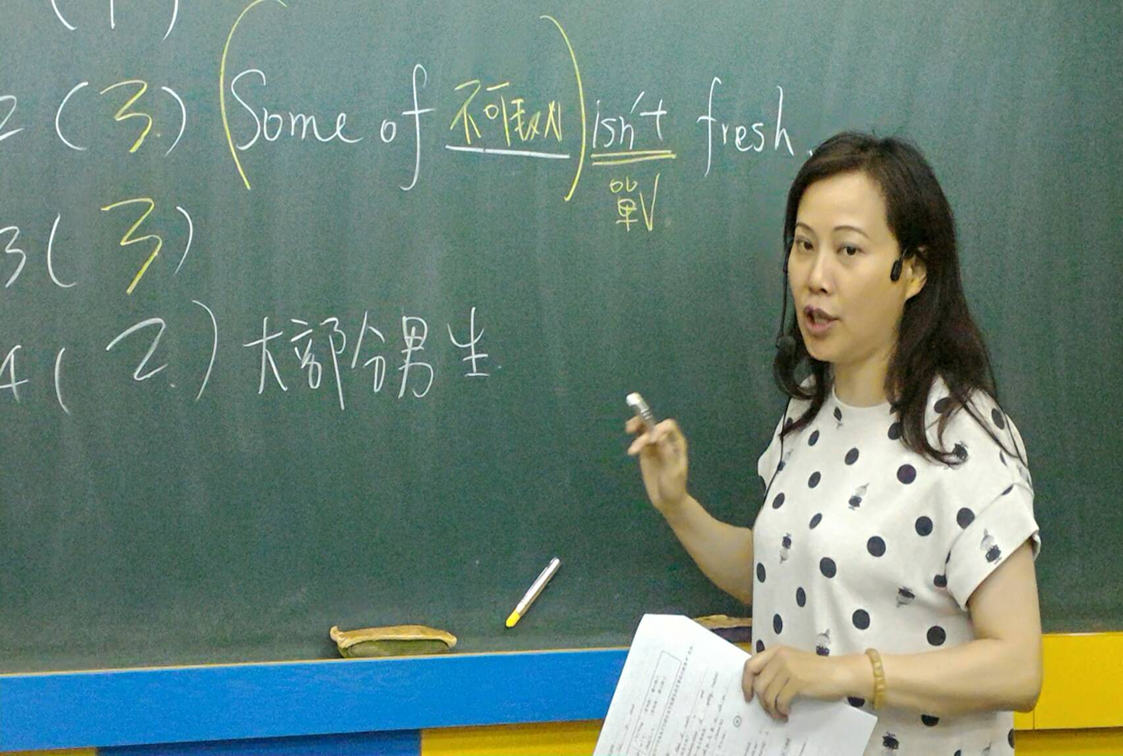 ( 1 )
2 ( 3 ) (Some of 不可數N) isn't fresh.
單V
3 ( 3 )
4 ( 2 ) 大部分男生